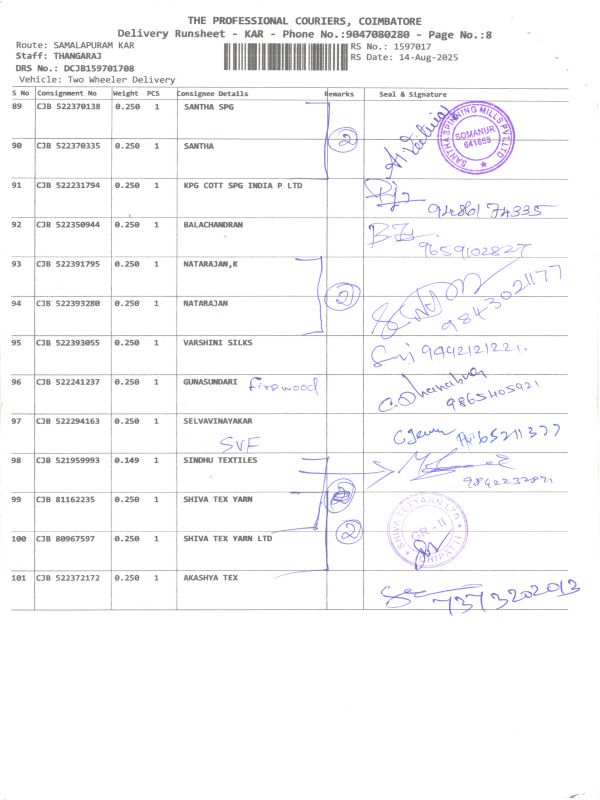 THE PROFESSIONAL COURIERS, COIMBATORE
Delivery Runsheet - KAR - Phone No.:9047080280 - Page No.:8
Route: SAMALAPURAM KAR
RS No.: 1597017
Staff: THANGARAJ
RS Date: 14-Aug-2025
DRS No.: DCJB159701708
Vehicle: Two Wheeler Delivery
S No Consignment No Weight PCS Consignee Details Remarks Seal & Signature
89 CJB 522370138 0.250 1 SANTHA SPG
SANTHA SPINNING MILLS PVT LTD SOMANUR
2
90 CJB 522370335 0.250 1 SANTHA
91 CJB 522231794 0.250 1 KPG COTT SPG INDIA P LTD
94861 74335
92 CJB 522350944 0.250 1 BALACHANDRAN
9659102827
93 CJB 522391795 0.250 1 NATARAJAN,K
2
9843021177
94 CJB 522393280 0.250 1 NATARAJAN
95 CJB 522393055 0.250 1 VARSHINI SILKS
Sri 9442121221.
96 CJB 522241237 0.250 1 GUNASUNDARI Firewood
9865405921
97 CJB 522294163 0.250 1 SELVAVINAYAKAR
SVF
98 CJB 521959993 0.149 1 SINDHU TEXTILES
99 CJB 81162235 0.250 1 SHIVA TEX YARN
SHIVA TEXYARN LTD GR-II
100 CJB 80967597 0.250 1 SHIVA TEX YARN LTD
2
101 CJB 522372172 0.250 1 AKASHYA TEX
7373202013